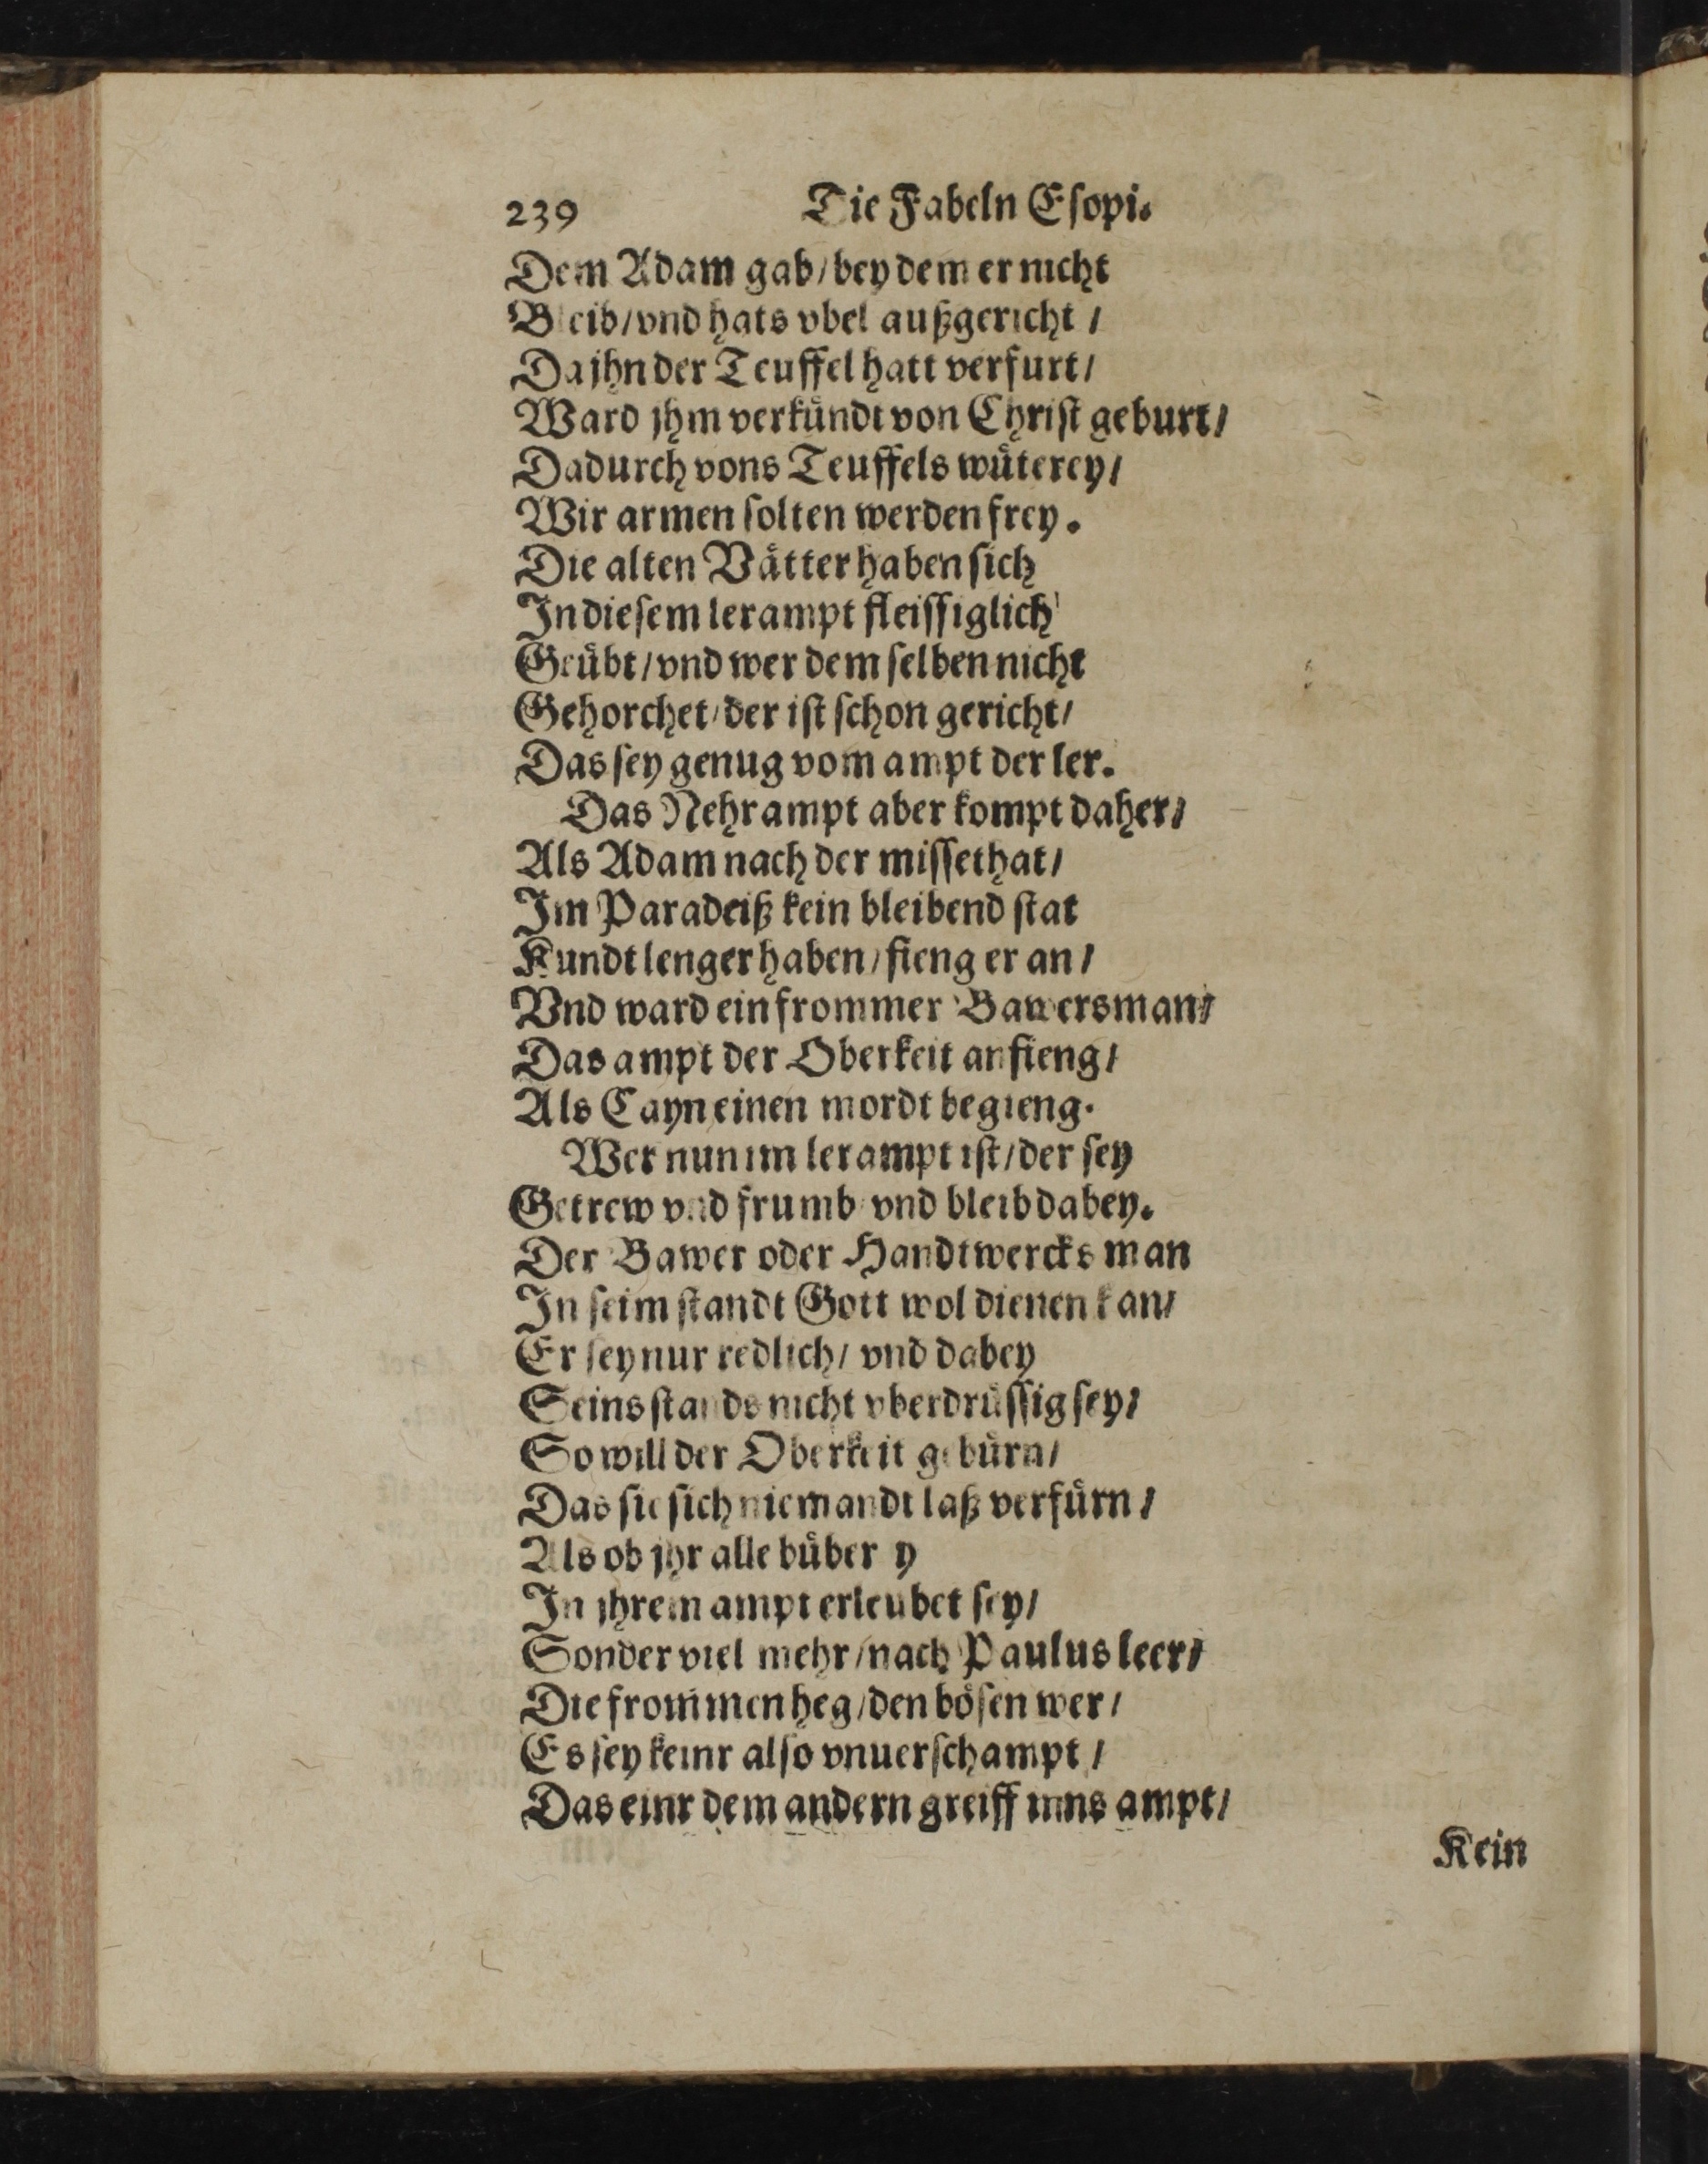 239 Die Fabeln Eſopi.
Dem Adam gab/bey dem er nicht
Bleib/vnd hats vbel außgericht/
Da jhn der Teuffel hatt verfurt/
Ward jhm verkuͤndt von Chriſt geburt/
Dadurch vons Teuffels wuͤterey/
Wir armen ſolten werden frey.
Die alten Vaͤtter haben ſich
In dieſem lerampt fleiſſiglich
Geuͤbt/vnd wer dem ſelben nicht
Gehorchet/der iſt ſchon gericht/
Das ſey genug vom ampt der ler.
Das Nehrampt aber kompt daher/
Als Adam nach der miſſethat/
Im Paradeiß kein bleibend ſtat
Kundt lenger haben/fieng er an/
Vnd ward ein frommer Bawersman/
Das ampt der Oberkeit anfieng/
Als Cayn einen mordt begieng.
Wer nun im lerampt iſt/der ſey
Getrew vnd frumb vnd bleib dabey.
Der Bawer oder Handtwercks man
In ſeim ſtandt Gott wol dienen kan/
Er ſey nur redlich/ vnd dabey
Seins ſtands nicht vberdruͤſſig ſey/
So will der Oberkeit gebuͤrn/
Das ſie ſich niemandt laß verfuͤrn/
Als ob jhr alle buͤberey
In jhrem ampt erleubet ſey/
Sonder viel mehr/nach Paulus leer/
Die frommen heg/den boͤſen wer/
Es ſey keinr alſo vnuerſchampt/
Das einr dem andern greiff inns ampt/
Kein